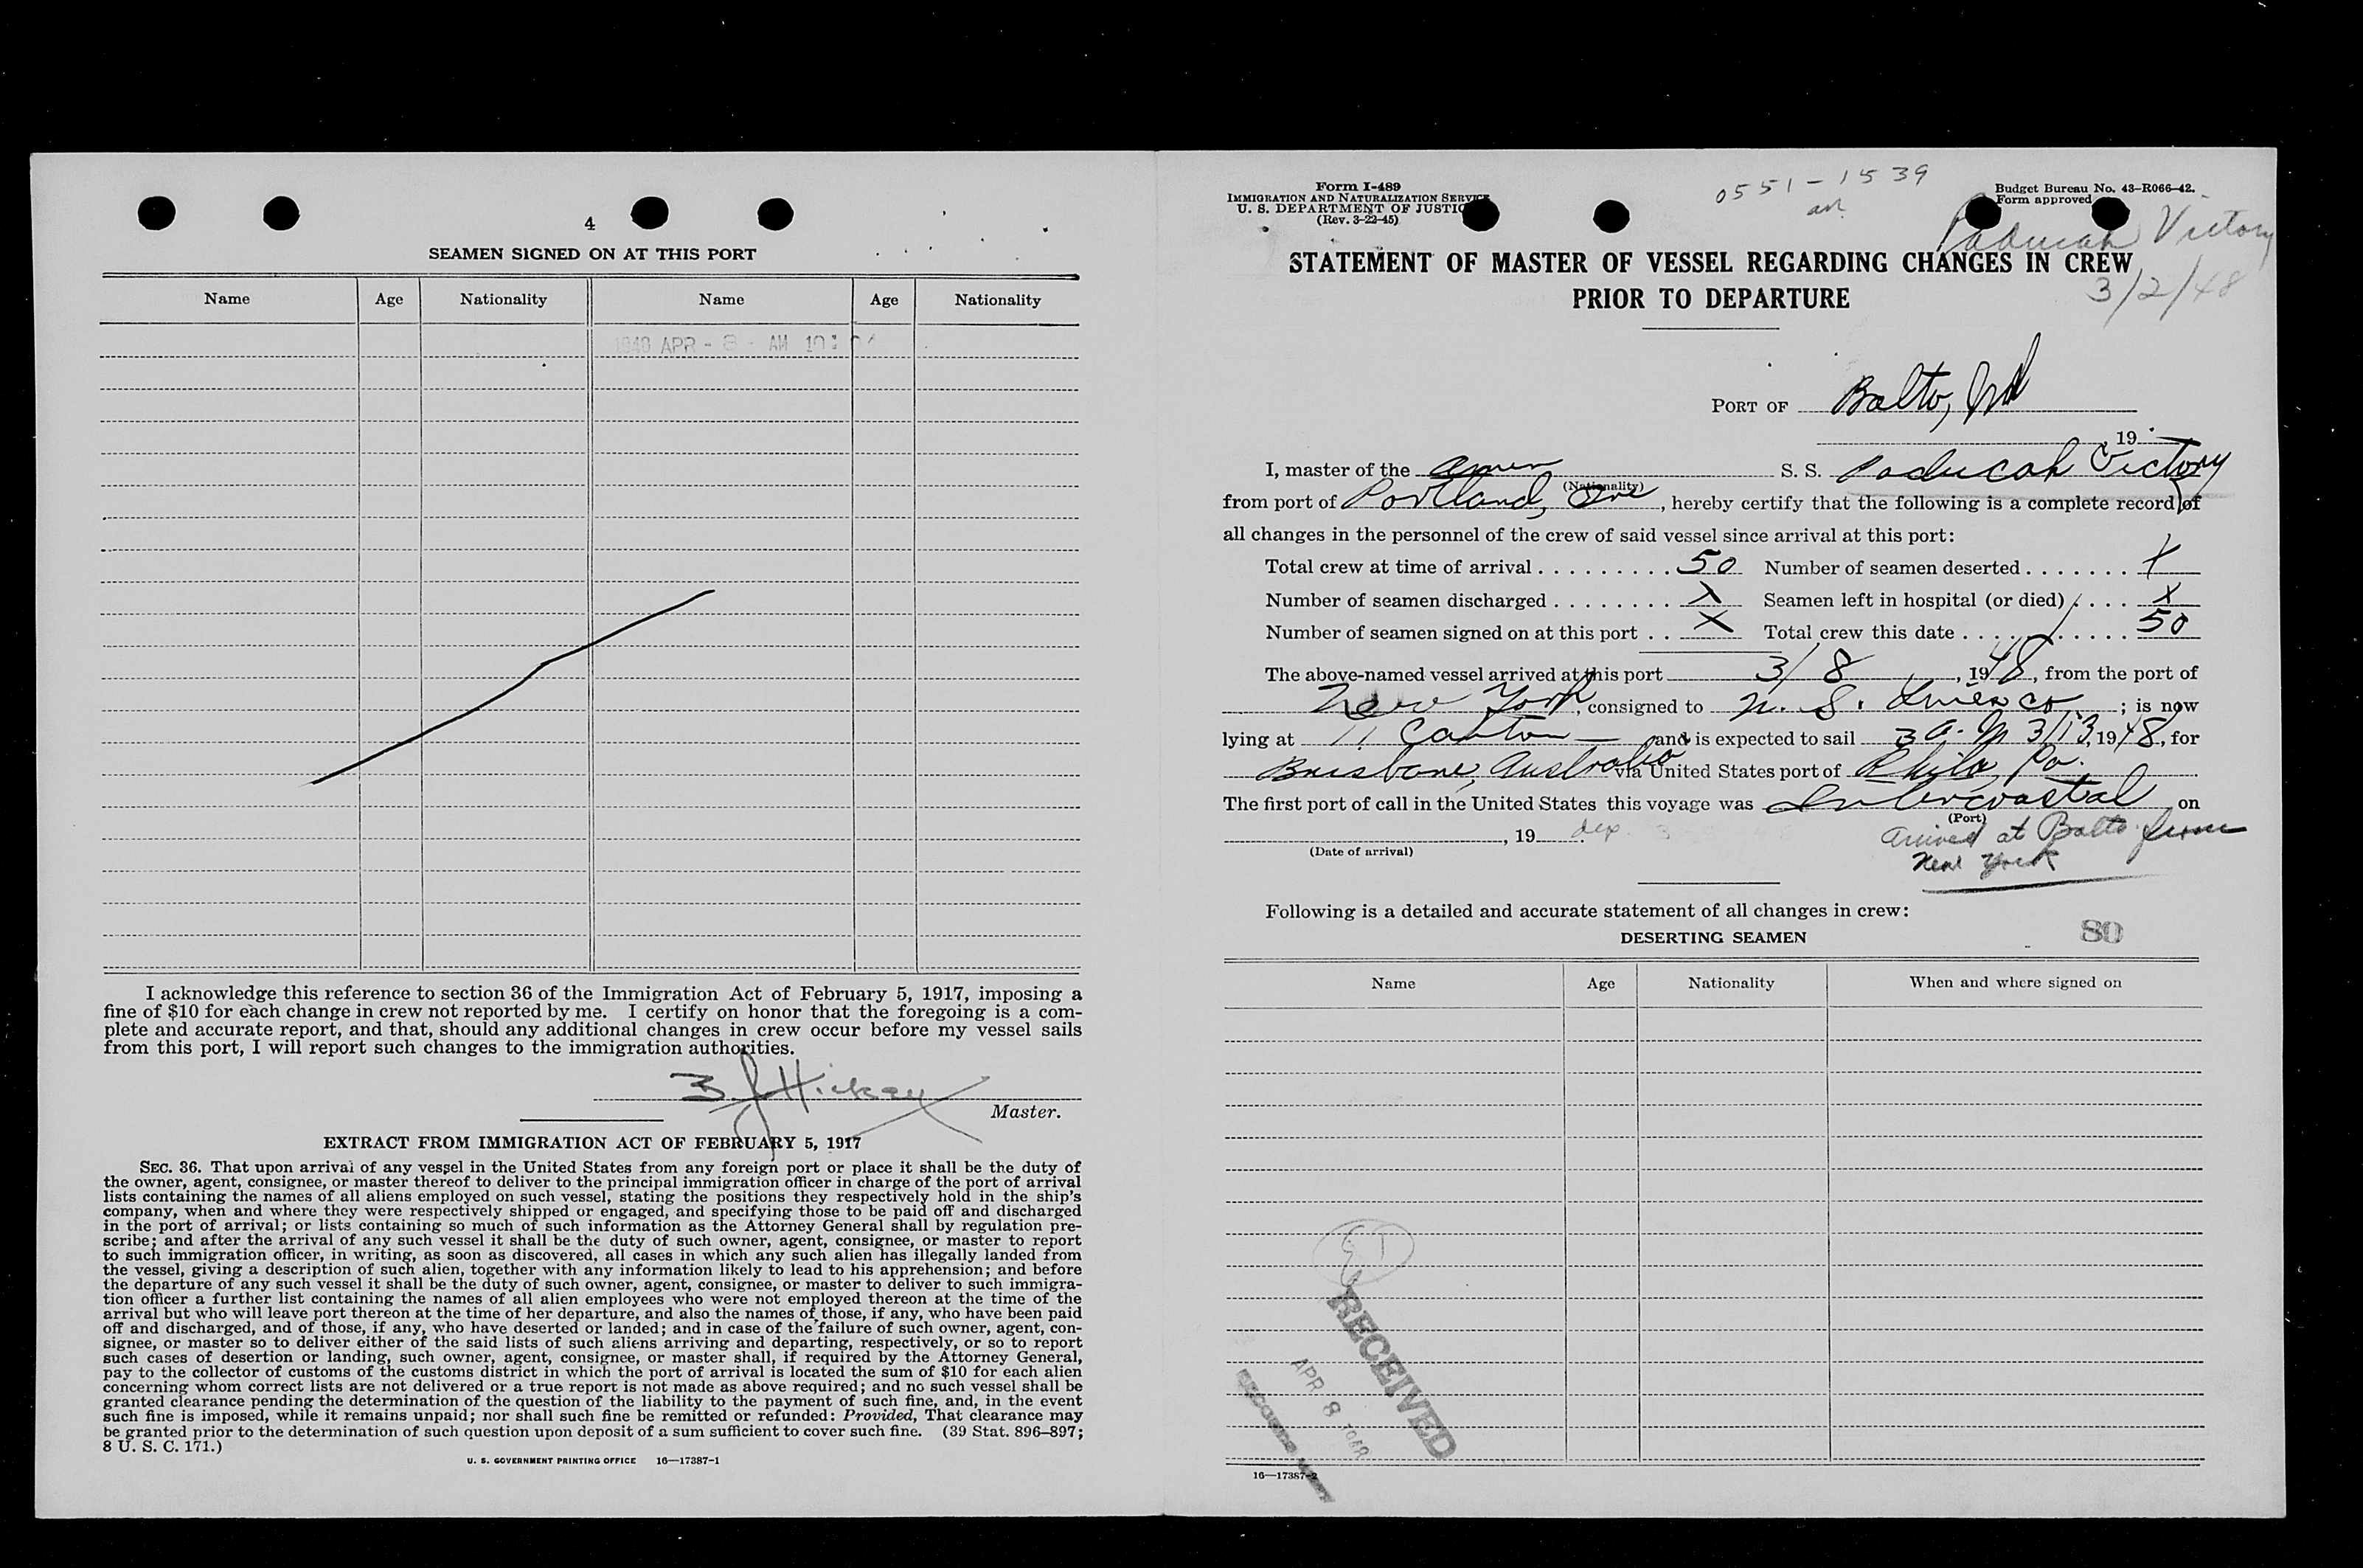 4
SEAMEN SIGNED ON AT THIS PORT
Name Age Nationality Name Age Nationality
APR - 8 - AM 10:
I acknowledge this reference to section 36 of the Immigration Act of February 5, 1917, imposing a
fine of $10 for each change in crew not reported by me. I certify on honor that the foregoing is a com-
plete and accurate report, and that, should any additional changes in crew occur before my vessel sails
from this port, I will report such changes to the immigration authorities.
B J Hickey
Master.
EXTRACT FROM IMMIGRATION ACT OF FEBRUARY 5, 1917
SEC. 36. That upon arrival of any vessel in the United States from any foreign port or place it shall be the duty of
the owner, agent, consignee, or master thereof to deliver to the principal immigration officer in charge of the port of arrival
lists containing the names of all aliens employed on such vessel, stating the positions they respectively hold in the ship's
company, when and where they were respectively shipped or engaged, and specifying those to be paid off and discharged
in the port of arrival; or lists containing so much of such information as the Attorney General shall by regulation pre-
scribe; and after the arrival of any such vessel it shall be the duty of such owner, agent, consignee, or master to report
to such immigration officer, in writing, as soon as discovered, all cases in which any such alien has illegally landed from
the vessel, giving a description of such alien, together with any information likely to lead to his apprehension; and before
the departure of any such vessel it shall be the duty of such owner, agent, consignee, or master to deliver to such immigra-
tion officer a further list containing the names of all alien employees who were not employed thereon at the time of the
arrival but who will leave port thereon at the time of her departure, and also the names of those, if any, who have been paid
off and discharged, and of those, if any, who have deserted or landed; and in case of the failure of such owner, agent, con-
signee, or master so to deliver either of the said lists of such aliens arriving and departing, respectively, or so to report
such cases of desertion or landing, such owner, agent, consignee, or master shall, if required by the Attorney General,
pay to the collector of customs of the customs district in which the port of arrival is located the sum of $10 for each alien
concerning whom correct lists are not delivered or a true report is not made as above required; and no such vessel shall be
granted clearance pending the determination of the question of the liability to the payment of such fine, and, in the event
such fine is imposed, while it remains unpaid; nor shall such fine be remitted or refunded: Provided, That clearance may
be granted prior to the determination of such question upon deposit of a sum sufficient to cover such fine. (39 Stat. 896–897;
8 U. S. C. 171.)
U. S. GOVERNMENT PRINTING OFFICE 16—17387-1
Form I-489
IMMIGRATION AND NATURALIZATION SERVICE
U. S. DEPARTMENT OF JUSTICE
(Rev. 3-22-45)
0551-1539
Budget Bureau No. 43-R066-42.
Form approved
Paducah Victory
3/2/48
STATEMENT OF MASTER OF VESSEL REGARDING CHANGES IN CREW
PRIOR TO DEPARTURE
PORT OF Balto, Md
19
I, master of the Amer S. S. Paducah Victory
(Nationality)
from port of Portland, Ore, hereby certify that the following is a complete record of
all changes in the personnel of the crew of said vessel since arrival at this port:
Total crew at time of arrival 50 Number of seamen deserted X
Number of seamen discharged X Seamen left in hospital (or died) X
Number of seamen signed on at this port X Total crew this date 50
The above-named vessel arrived at this port 3/8, 1948, from the port of
New York, consigned to ; is now
lying at Canton and is expected to sail 3 A.M 3/13, 1948, for
Brisbane, Australia via United States port of Phila, Pa.
The first port of call in the United States this voyage was Intercoastal on
(Port)
, 19 dep.
(Date of arrival)
Arrived at Balto from
New York
Following is a detailed and accurate statement of all changes in crew:
80
DESERTING SEAMEN
Name Age Nationality When and where signed on
RECEIVED
APR 8 1948
16—17387-2